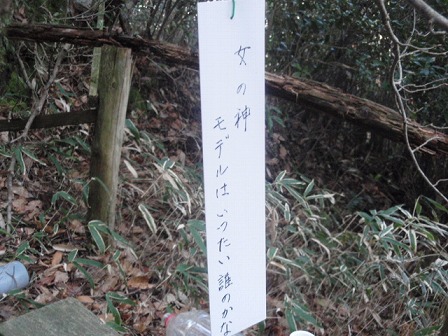 女の神
モデルはいったい誰のかな